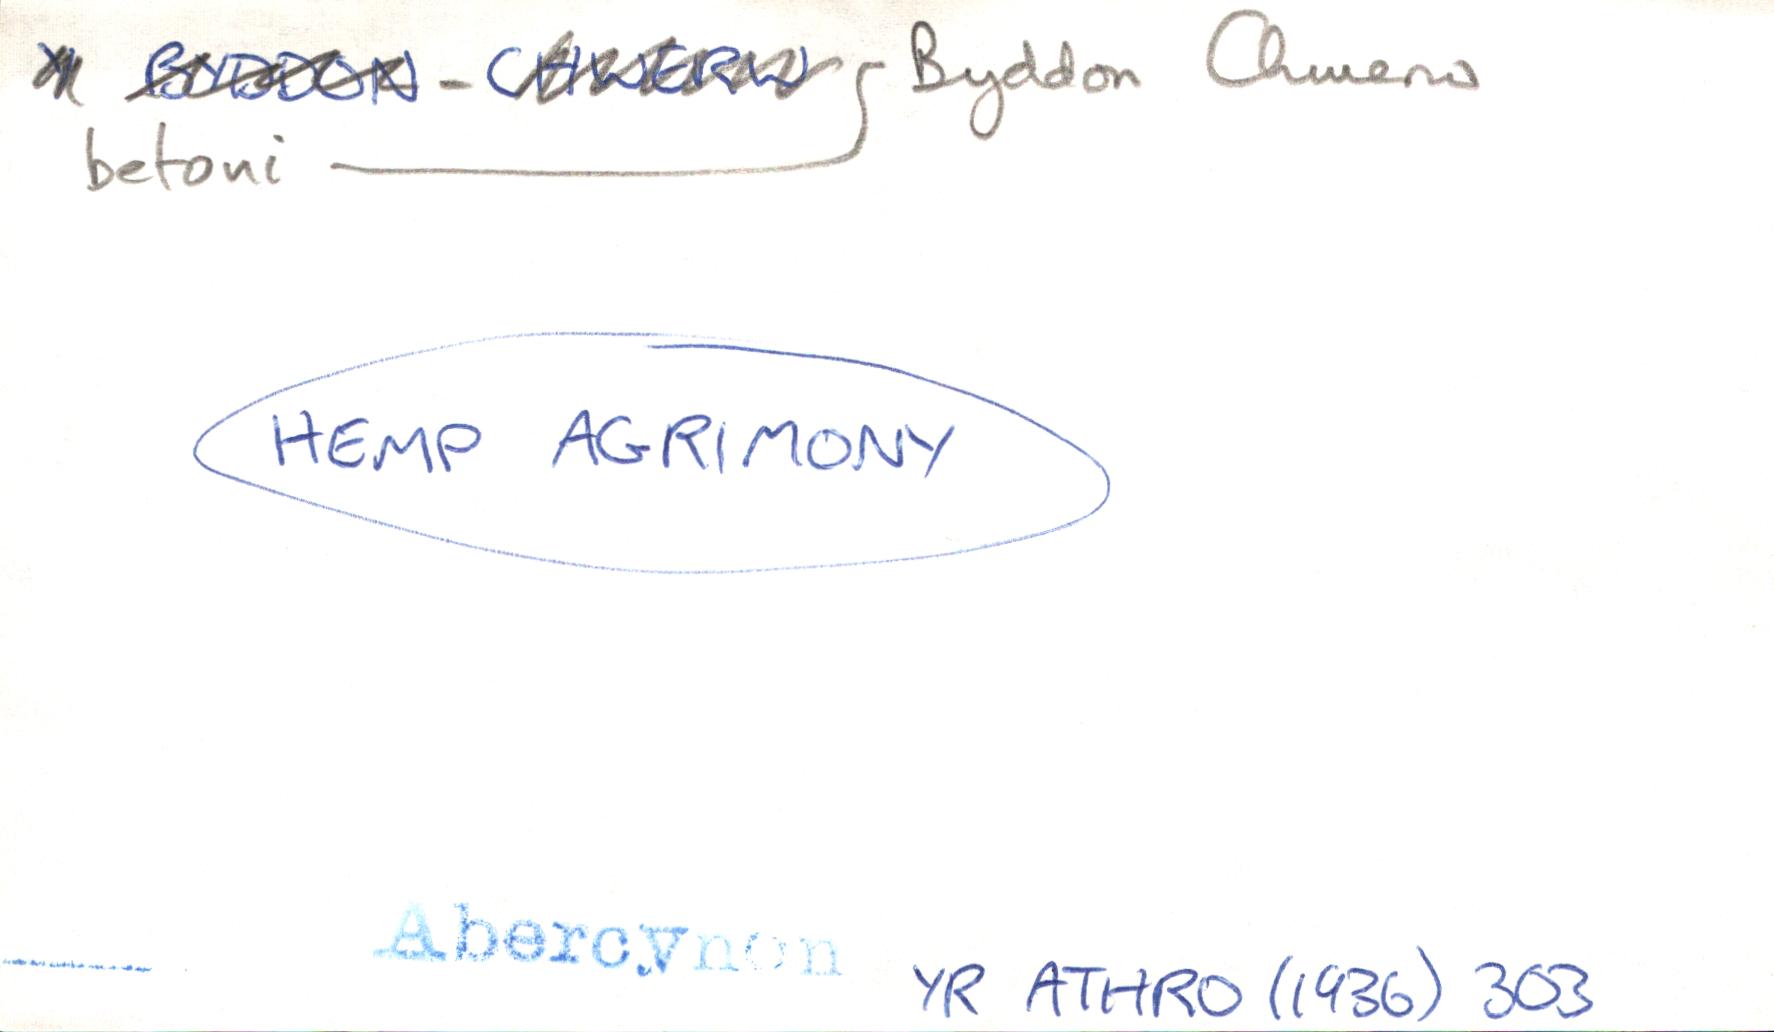 BYDDON - CHWERW Byddon Chwerw
betoni
HEMP AGRIMONY
Abercynon
YR ATHRO (1936) 303